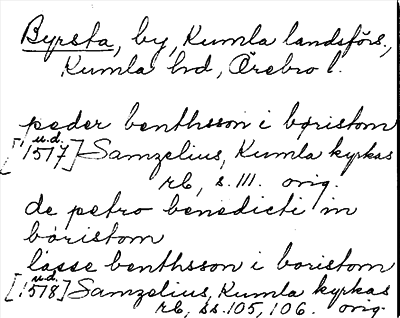 Byrsta, by, Kumla landsförs.,
Kumla hd, Örebro l.
peder benthsson i børistom
u.d.
[1517] Samzelius, Kumla kyrkas
rb, s. 111. orig.
de petro benedicti in
børistom
lasse benthsson i boristom
u.d.
[1518] Samzelius, Kumla kyrkas
rb, ss. 105, 106. orig.